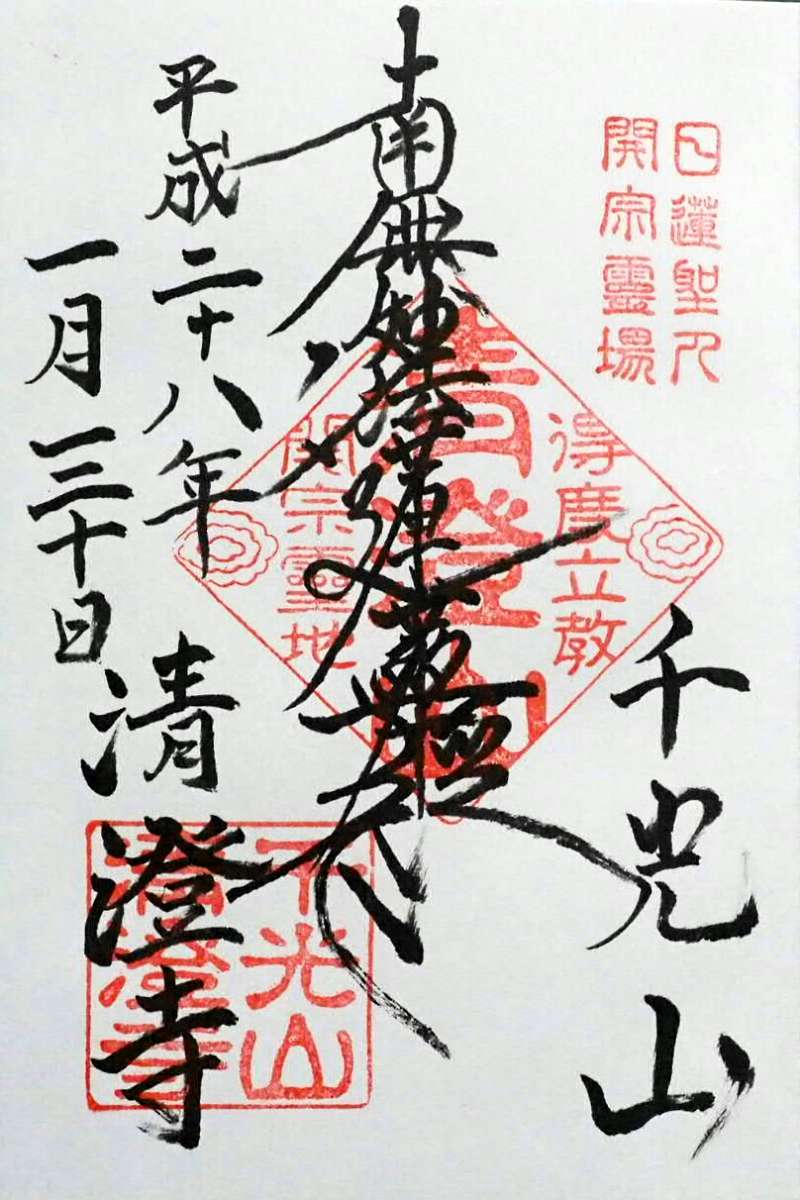 日蓮聖人
開宗靈場
千光山
得度立教
南無妙法蓮華經
清澄山
開宗靈地
平成二十八年
一月三十日
清澄寺
千光山
清澄寺